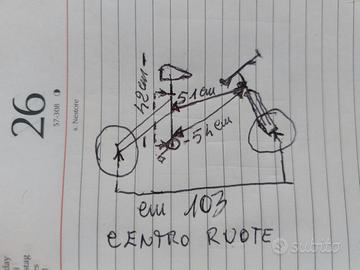 26
57-308
s. Nestore
48cm
51cm
54cm
cm 103
CENTRO RUOTE
subito